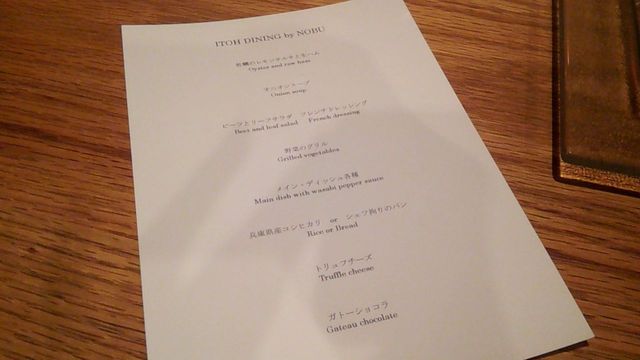 ITOH DINING by NOBU
牡蠣のレモンジュレと生ハム
Oyster and raw ham
オニオンスープ
Onion soup
ビーツとリーフサラダ フレンチドレッシング
Beet and leaf salad French dressing
野菜のグリル
Grilled vegetables
メイン・ディッシュ各種
Main dish with wasabi pepper sauce
兵庫県産コシヒカリ or シェフ拘りのパン
Rice or Bread
トリュフチーズ
Truffle cheese
ガトーショコラ
Gateau chocolate